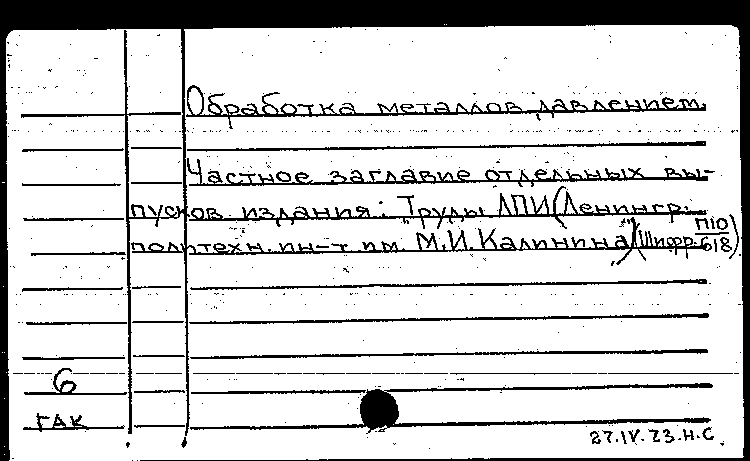 Обработка металлов давлением.
Частное заглавие отдельных вы-
пусков издания: "Труды ЛПИ (Ленингр.
политехн. ин-т им. М.И. Калинина)" (Шифр П10/618)
6
ГАК
27.IV.73.Н.С.